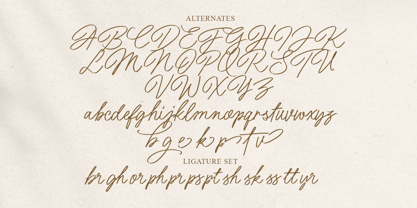 ALTERNATES
A B C D E F G H I J K
L M N O P Q R S T U
V W X Y Z
abcdefghijklmnopqrstuvwxyz
b g e k p t v
LIGATURE SET
br gh or ph pr ps pt sh sk ss tt yr